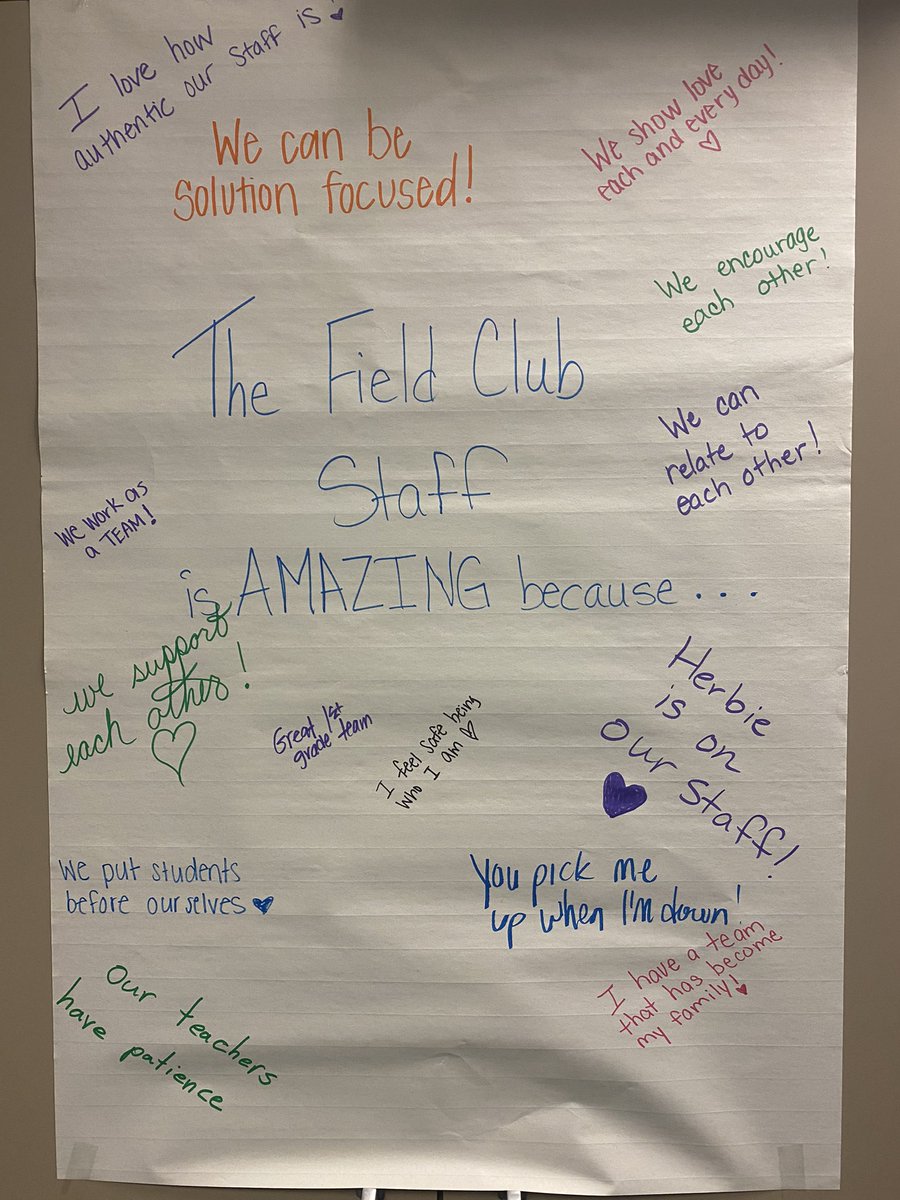 I love how
authentic our staff is!
We can be
Solution focused!
We show love
each and every day!
We encourage
each other!
The Field Club
Staff
is AMAZING because...
We can
relate to
each other!
We work as
a TEAM!
we support
each other!
Great 1st
grade team
I feel safe being
who I am
Herbie
is on
our staff!
We put students
before ourselves
You pick me
up when I'm down!
I have a team
that has become
my family!
Our teachers
have patience